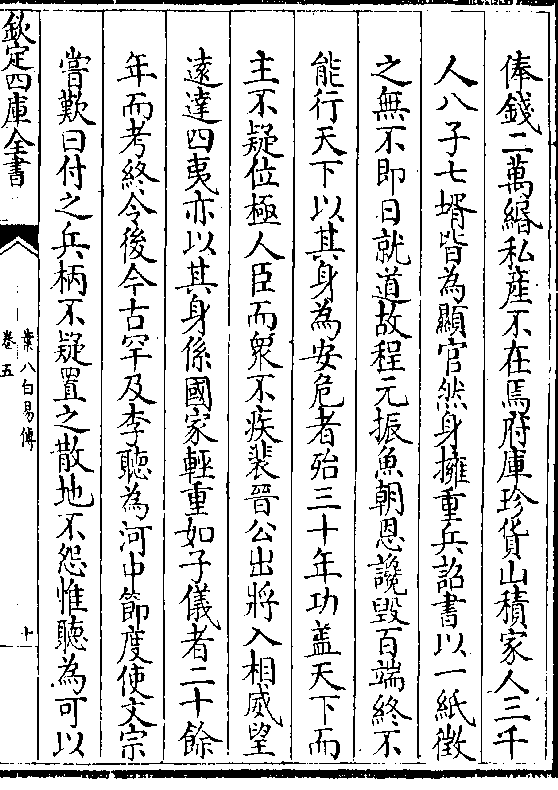 俸錢二萬緡私産不在焉府庫珍貨山積家人三千
人八子七壻皆為顯官然身擁重兵詔書以一紙徴
之無不即日就道故程元振魚朝恩讒毀百端終不
能行天下以其身為安危者殆三十年功盖天下而
主不疑位極人臣而衆不疾裴晉公出將入相威望
逺達四夷亦以其身係國家輕重如子儀者二十餘
年而考終令後今古罕及李聴為河中節度使文宗
嘗歎曰付之兵柄不疑置之散地不怨惟聴為可以
欽定四庫全書
葉八白易傳
卷五
十